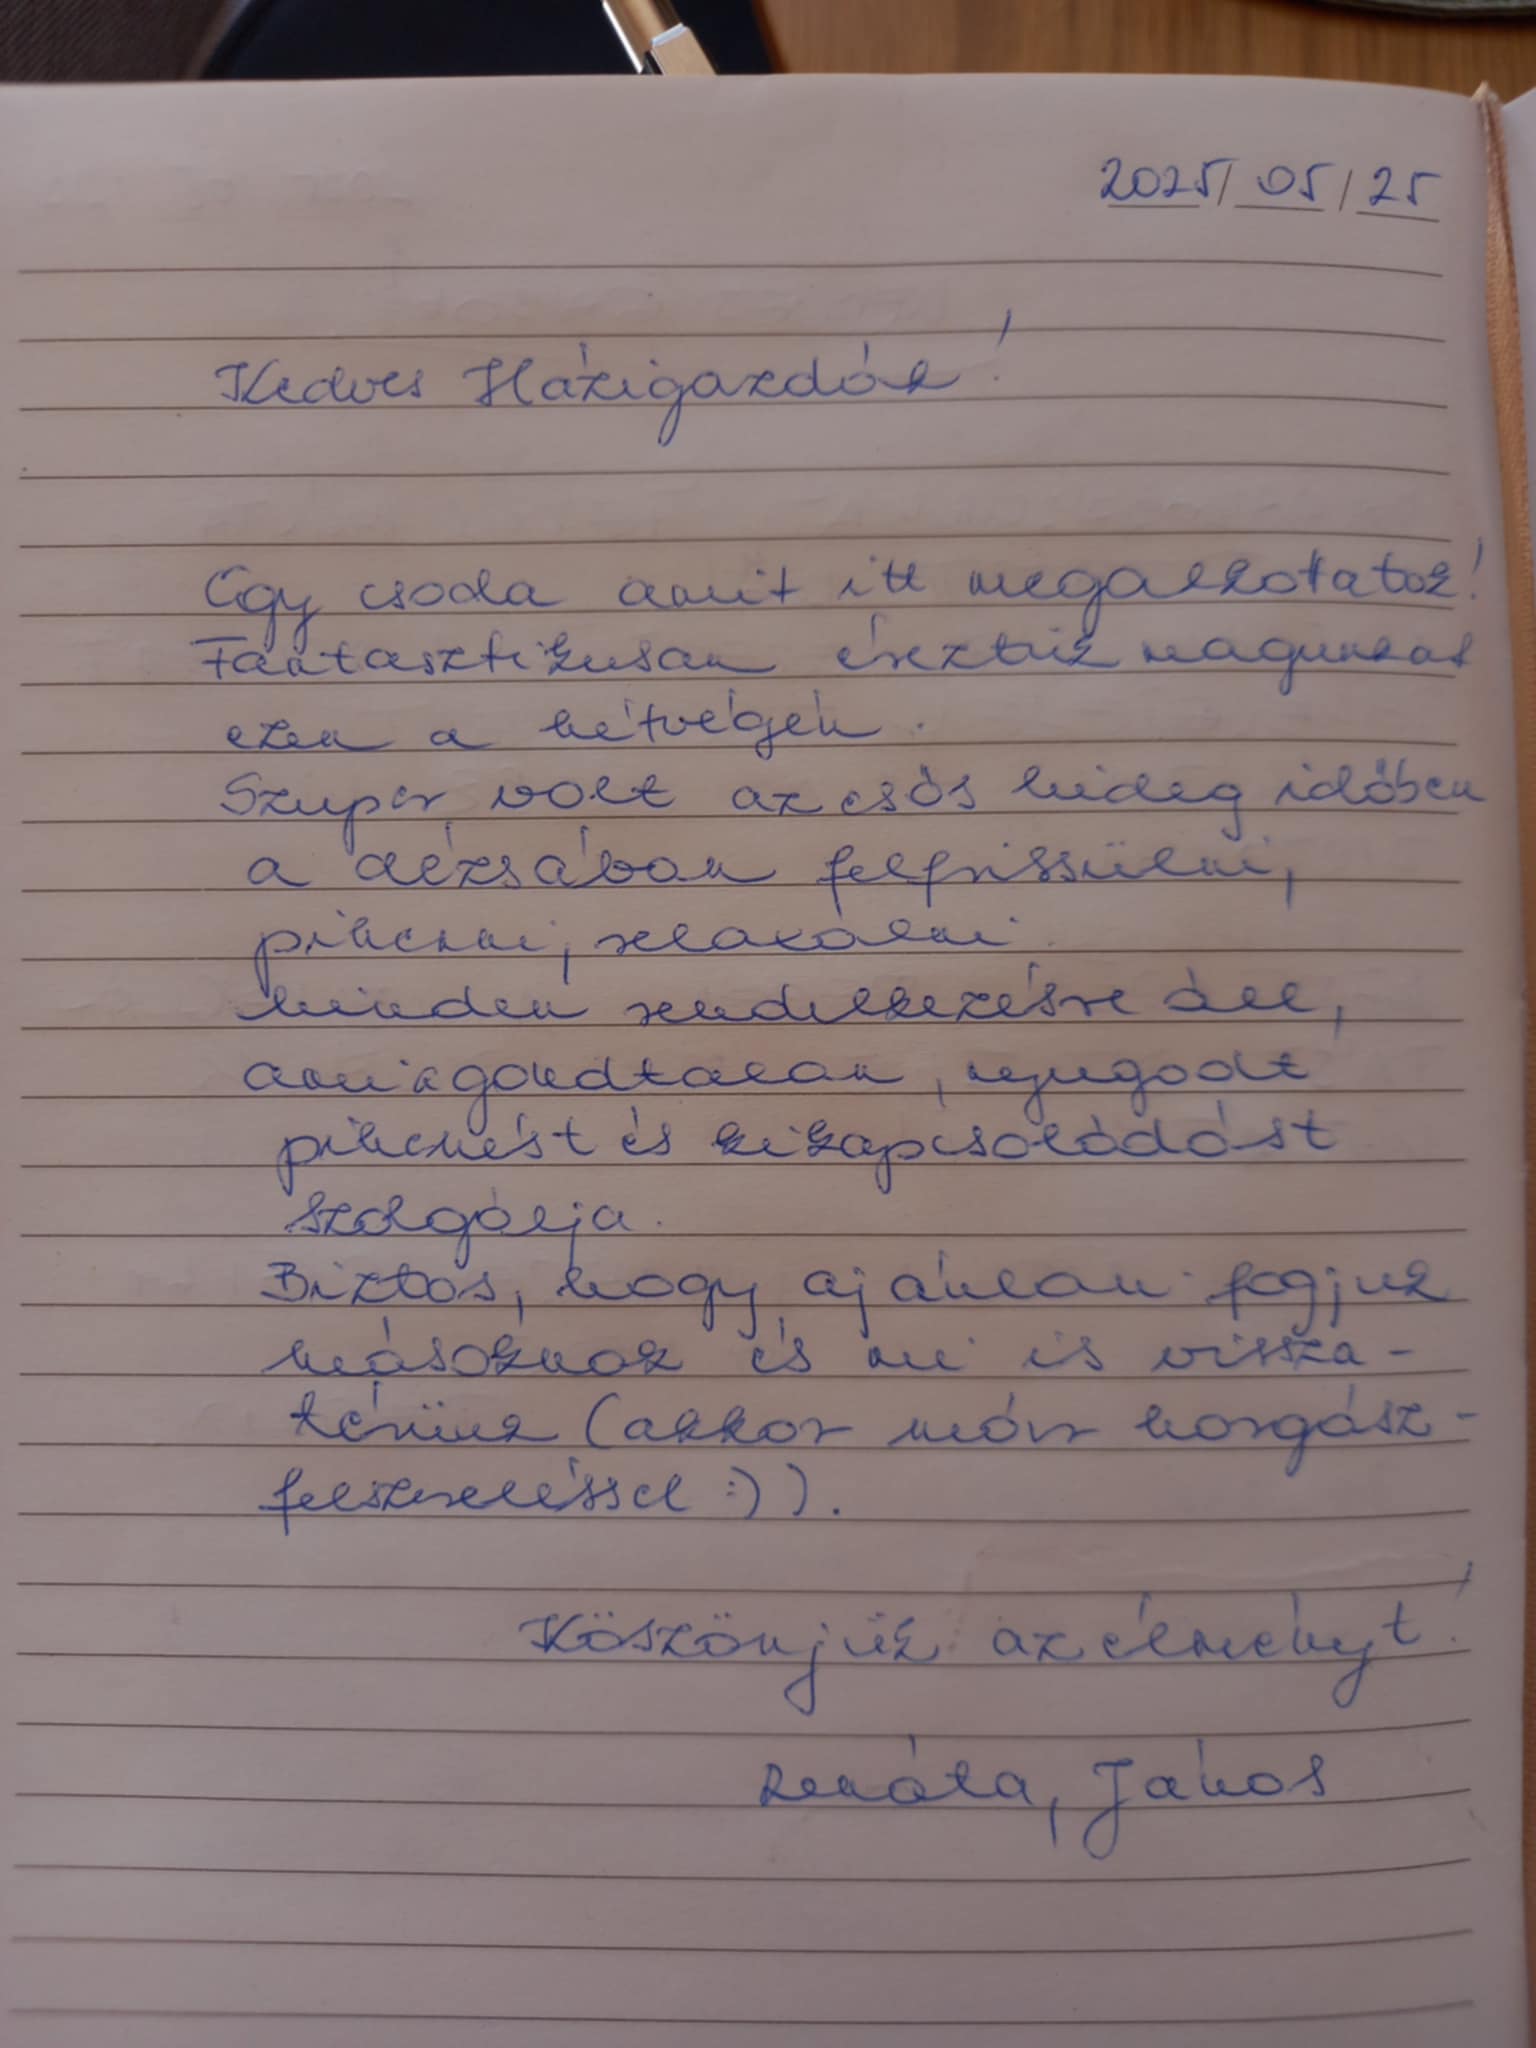 2025/05/25
Kedves Házigazdák!
Egy csoda amit itt megalkottatok!
Fantasztikusan éreztük magunkat
ezen a hétvégén.
Szuper volt az esős hideg időben
a dézsában felfrissülni,
pihenni, relaxálni.
Minden rendelkezésre áll,
ami a gondtalan, nyugodt
pihenést és kikapcsolódást
szolgálja.
Biztos, hogy ajánlani fogjuk
másoknak és mi is vissza-
térünk (akkor már horgász-
felszereléssel :)).
Köszönjük az élményt!
Renáta, János